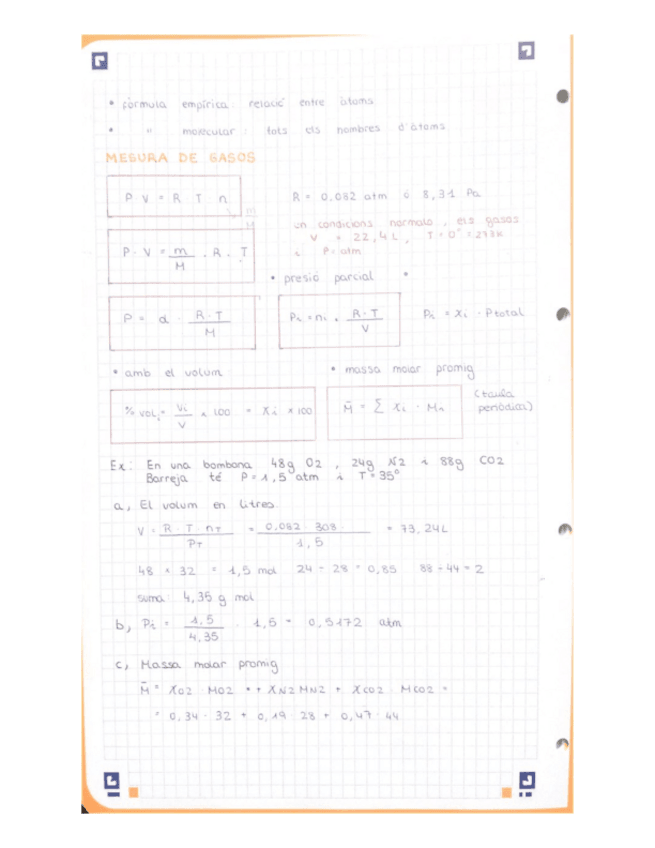 • fórmula empírica: relació entre àtoms
• " molecular: tots els nombres d'àtoms
MESURA DE GASOS
P V = R T n
R = 0,082 atm ó 8,31 Pa
m
M
en condicions normals, els gasos
V = 22,4 L, T = 0° = 273K
P. atm
P · V = m/M · R · T
• presió parcial •
P = d · R·T/M
Pi = ni · R·T/V
Pi = Xi · Ptotal
• amb el volum
• massa molar promig
% vol = Vi/V × 100 = Xi × 100
M̄ = Σ Xi · Mn
(taula
periòdica)
Ex: En una bombona 48g O2, 24g N2 i 88g CO2
Barreja té P = 1,5 atm i T = 35°
a, El volum en litres
V = R · T · nT / PT = 0,082 · 308 · / 1,5 = 73,24L
48 ÷ 32 = 1,5 mol 24 ÷ 28 = 0,85 88 ÷ 44 = 2
suma: 4,35 g mol
b, Pi = 1,5/4,35 · 1,5 = 0,5172 atm
c, Massa molar promig
M̄ = XO2 MO2 + XN2 MN2 + XCO2 · MCO2 =
= 0,34 · 32 + 0,19 · 28 + 0,47 · 44